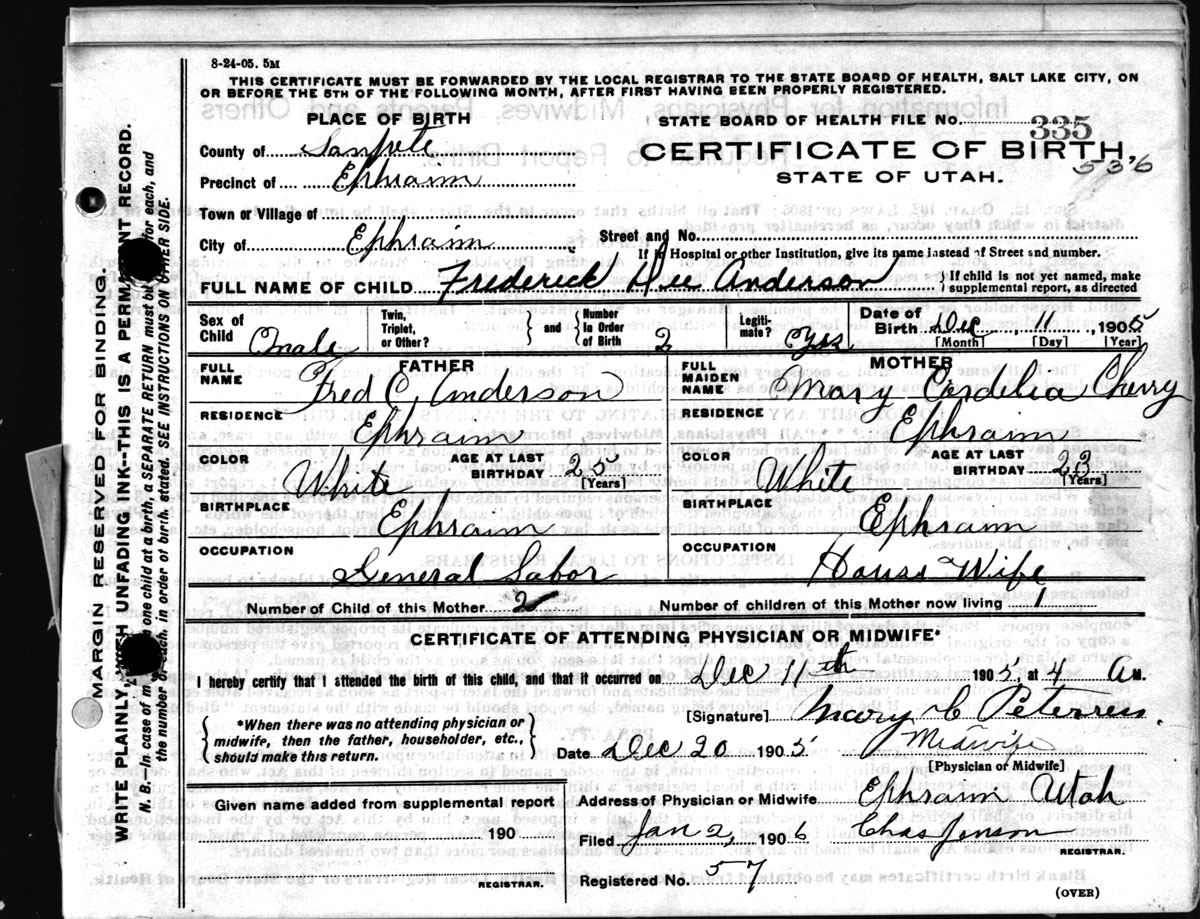 8-24-05. 5M
THIS CERTIFICATE MUST BE FORWARDED BY THE LOCAL REGISTRAR TO THE STATE BOARD OF HEALTH, SALT LAKE CITY, ON
OR BEFORE THE 5TH OF THE FOLLOWING MONTH, AFTER FIRST HAVING BEEN PROPERLY REGISTERED.
PLACE OF BIRTH
STATE BOARD OF HEALTH FILE No. 335
County of Sanpete
CERTIFICATE OF BIRTH,
536
Precinct of Ephraim
STATE OF UTAH.
Town or Village of
City of Ephraim
Street and No.
If in Hospital or other Institution, give its name instead of Street and number.
FULL NAME OF CHILD Frederick Dee Anderson
{If child is not yet named, make
supplemental report, as directed
Sex of Child Male
Twin, Triplet, or Other?
and
Number in Order of Birth 2
Legiti-mate? Yes
Date of Birth Dec. 11, 1905
[Month] [Day] [Year]
FATHER
FULL NAME Fred C. Anderson
RESIDENCE
Ephraim
COLOR White
AGE AT LAST BIRTHDAY 25
[Years]
BIRTHPLACE
Ephraim
OCCUPATION
General Labor
MOTHER
FULL MAIDEN NAME Mary Cordelia Cherry
RESIDENCE
Ephraim
COLOR White
AGE AT LAST BIRTHDAY 23
[Years]
BIRTHPLACE
Ephraim
OCCUPATION
House Wife
Number of Child of this Mother 2
Number of children of this Mother now living 1
CERTIFICATE OF ATTENDING PHYSICIAN OR MIDWIFE*
I hereby certify that I attended the birth of this child, and that it occurred on Dec 11th 1905, at 4 A M.
[Signature] Mary C Petersen.
*When there was no attending physician or
midwife, then the father, householder, etc.,
should make this return.
Date Dec 20 1905
Midwife
[Physician or Midwife]
Given name added from supplemental report
190
REGISTRAR.
Address of Physician or Midwife Ephraim Utah
Filed Jan 2, 1906 Chas Jenson
REGISTRAR.
Registered No. 57
(OVER)
MARGIN RESERVED FOR BINDING.
WRITE PLAINLY, WITH UNFADING INK--THIS IS A PERMANENT RECORD.
N. B.--In case of more than one child at a birth, a SEPARATE RETURN must be made for each, and
the number of each, in order of birth, stated. SEE INSTRUCTIONS ON OTHER SIDE.